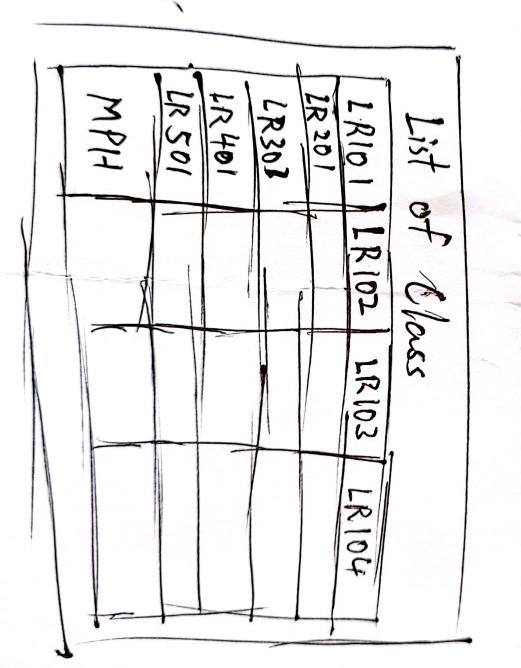 List of Class
LR101 LR102 LR103 LR104
LR201
LR303
LR401
LR501
MPH